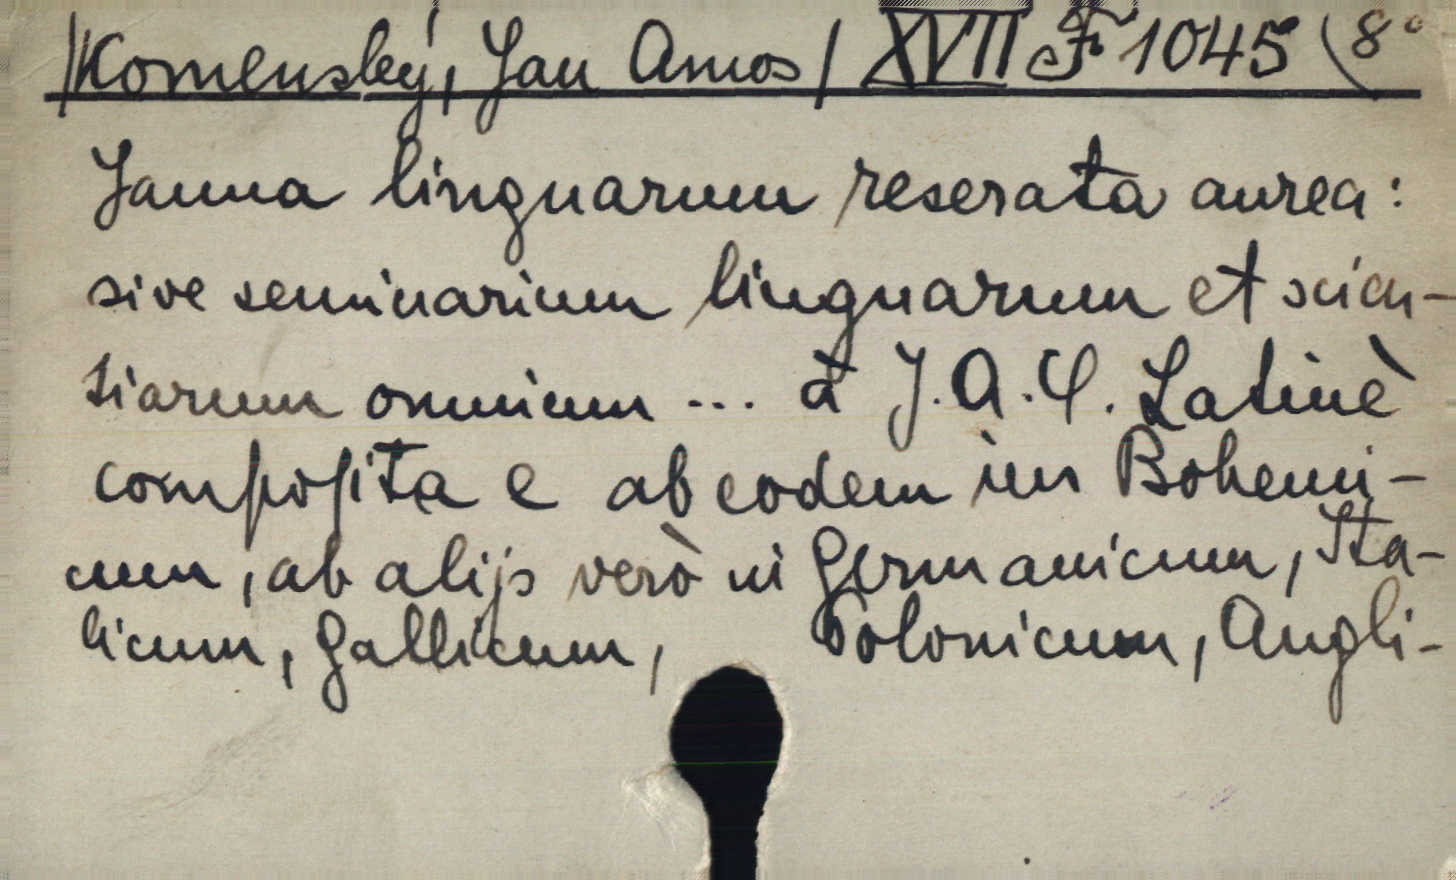 /Komenský, Jan Amos/ XVII F 1045 (8°
Janua linguarum reserata aurea:
sive seminarium linguarum et scien-
tiarum omnium ... à J. A. C. Latinè
compoſita e ab eodem in Bohemi-
cum, ab alijs verò in Germanicum, Ita-
licum, Gallicum, Polonicum, Angli-